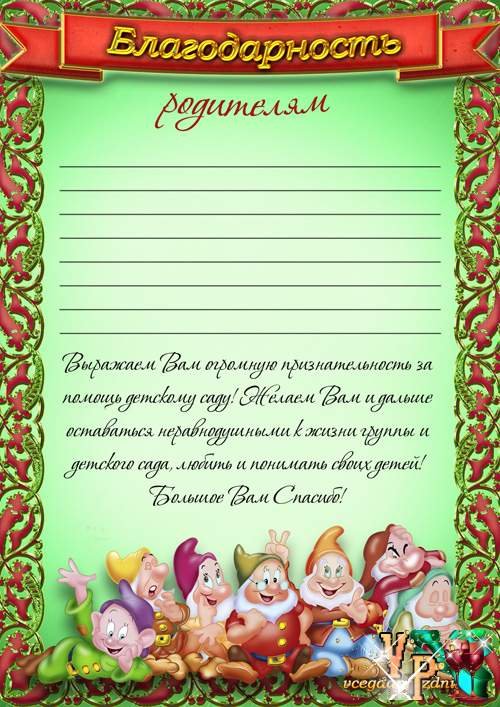 Благодарность
родителям
Выражаем Вам огромную признательность за
помощь детскому саду! Желаем Вам и дальше
оставаться неравнодушными к жизни группы и
детского сада, любить и понимать своих детей!
Большое Вам Спасибо!
VP